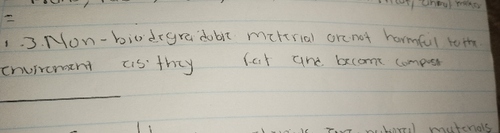 =
1.3. Non-biodegradable material are not harmful to the
environment as they rot and become compost
materials